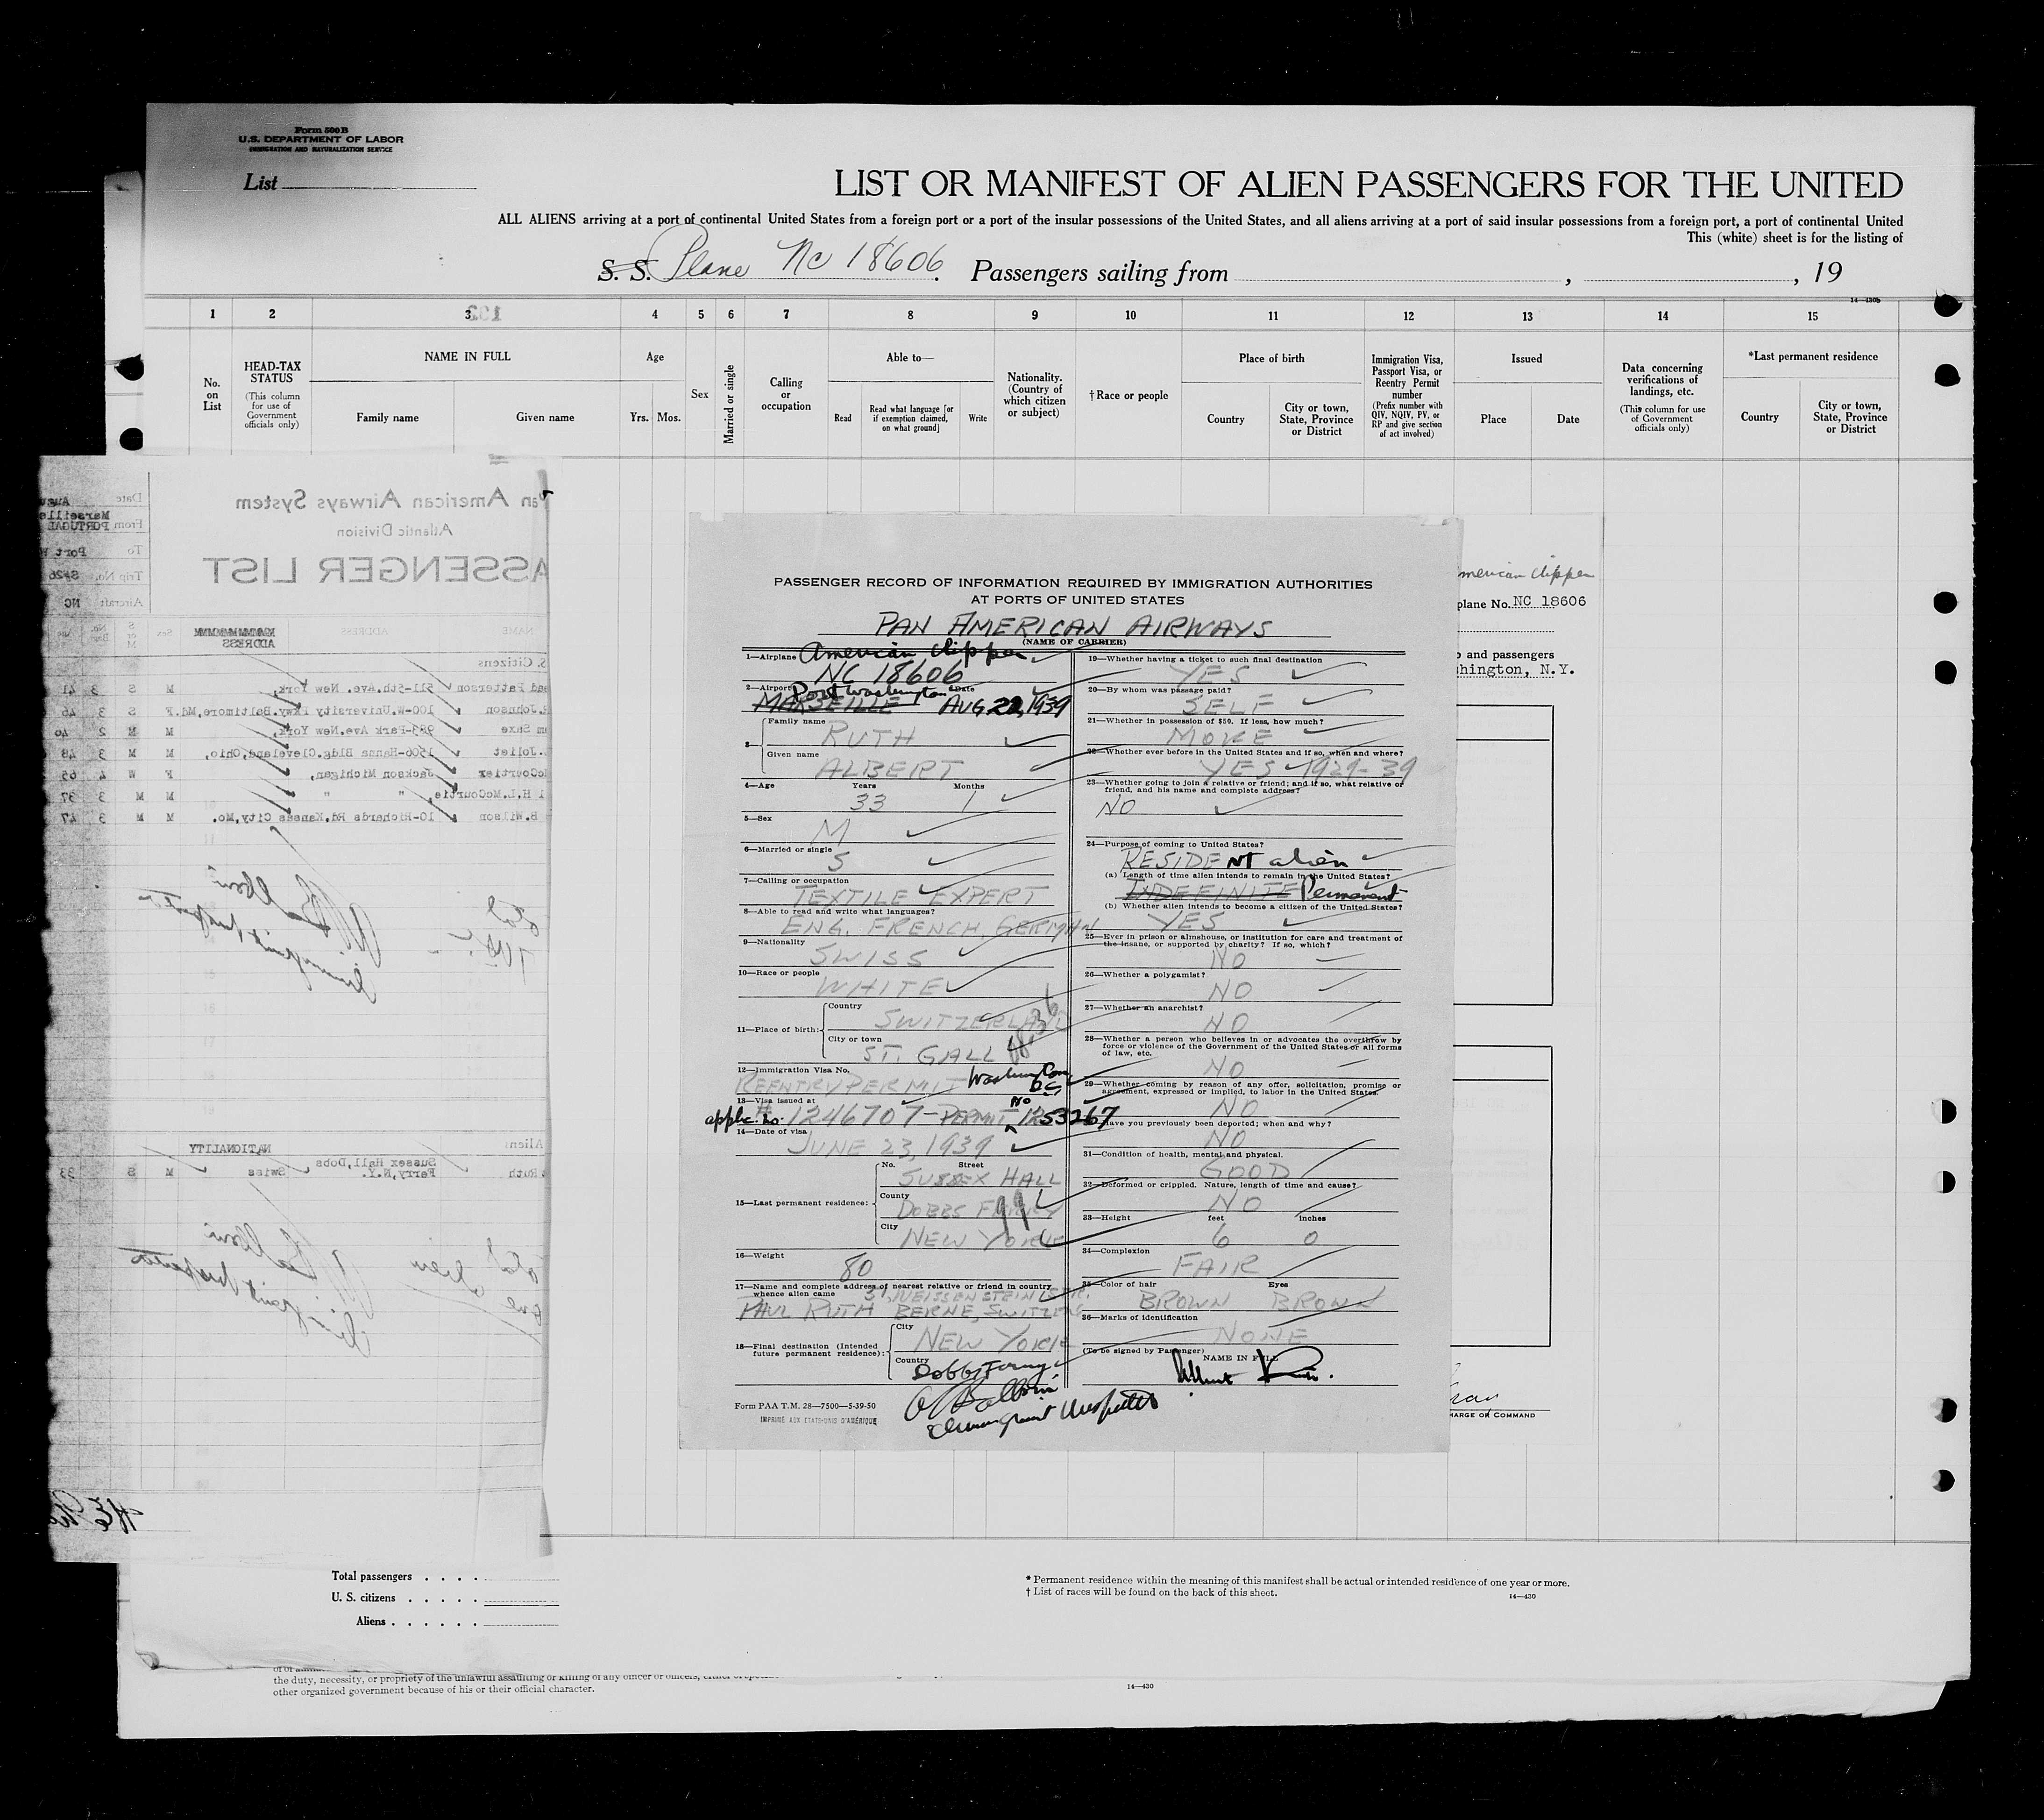 Form 500 B
U.S. DEPARTMENT OF LABOR
IMMIGRATION AND NATURALIZATION SERVICE
List
LIST OR MANIFEST OF ALIEN PASSENGERS FOR THE UNITED
ALL ALIENS arriving at a port of continental United States from a foreign port or a port of the insular possessions of the United States, and all aliens arriving at a port of said insular possessions from a foreign port, a port of continental United
This (white) sheet is for the listing of
S. S. Plane NC 18606. Passengers sailing from , , 19
14—430b
1 2 3 4 5 6 7 8 9 10 11 12 13 14 15
No. on List
HEAD-TAX STATUS
(This column for use of Government officials only)
NAME IN FULL
Family name Given name
Age
Yrs. Mos.
Sex
Married or single
Calling or occupation
Able to—
Read
Read what language [or if exemption claimed, on what ground]
Write
Nationality. (Country of which citizen or subject)
†Race or people
Place of birth
Country
City or town, State, Province or District
Immigration Visa, Passport Visa, or Reentry Permit number
(Prefix number with QIV, NQIV, PV, or RP and give section of act involved)
Issued
Place Date
Data concerning verifications of landings, etc.
(This column for use of Government officials only)
*Last permanent residence
Country
City or town, State, Province or District
Pan American Airways System
Atlantic Division
ASSENGER LIST
Date
From Marseille
PORTUGAL
To Port
Trip No.
Aircraft NC
NAME ADDRESS
ADDRESS
Sex
S. Citizens
Patterson 511-5th.Ave. New York, M S 3 41
Johnson 100-W.University Pkwy.Baltimore,Md. F S 3 46
Saxe 983-Park Ave.New York, M M 2 46
Joliet 1506-Hanna Bldg.Cleveland,Ohio, M M 3 49
McCourtiex Jackson Michigan, F W 4 65
H.L.McCourtie, " " M M 3 37
B.Wilson 10-Richards Rd,Kansas City,Mo. M M 3 47
Alien
NATIONALITY
Ruth Sussex Hall,Dobs
Ferry,N.Y. Swiss M S 33
PASSENGER RECORD OF INFORMATION REQUIRED BY IMMIGRATION AUTHORITIES
AT PORTS OF UNITED STATES
PAN AMERICAN AIRWAYS
(NAME OF CARRIER)
1—Airplane American Clipper
NC 18606
2—Airport Port Washington Date
MARSEILLE AUG 22, 1939
3—
Family name
RUTH
Given name
ALBERT
4—Age Years Months
33 1
5—Sex
M
6—Married or single
S
7—Calling or occupation
TEXTILE EXPERT
8—Able to read and write what languages?
ENG. FRENCH, GERMAN
9—Nationality
SWISS
10—Race or people
WHITE
11—Place of birth:
Country
SWITZERLAND
City or town
ST. GALL
12—Immigration Visa No.
REENTRY PERMIT Washington DC
13—Visa issued at
applic. no. # 1246707 - PERMIT No 1253267
14—Date of visa
JUNE 23, 1939
15—Last permanent residence:
No. Street
SUSSEX HALL
County
DOBBS FERRY
City
NEW YORK
16—Weight
80
17—Name and complete address of nearest relative or friend in country
whence alien came 31, WEISSENSTEINSTR.
PAUL RUTH BERNE, SWITZERL
18—Final destination (Intended
future permanent residence):
City
NEW YORK
Country
Dobbs Ferry
Form PAA T.M. 28—7500—5-39-50
IMPRIMÉ AUX ETATS-UNIS D'AMÉRIQUE
Immigrant Inspector
19—Whether having a ticket to such final destination
YES
20—By whom was passage paid?
SELF
21—Whether in possession of $50. If less, how much?
MORE
22—Whether ever before in the United States and if so, when and where?
YES 1929-39
23—Whether going to join a relative or friend; and if so, what relative or
friend, and his name and complete address?
NO
24—Purpose of coming to United States?
RESIDENT alien
(a) Length of time alien intends to remain in the United States?
INDEFINITE Permanent
(b) Whether alien intends to become a citizen of the United States?
YES
25—Ever in prison or almshouse, or institution for care and treatment of
the insane, or supported by charity? If so, which?
NO
26—Whether a polygamist?
NO
27—Whether an anarchist?
NO
28—Whether a person who believes in or advocates the overthrow by
force or violence of the Government of the United States or all forms
of law, etc.
NO
29—Whether coming by reason of any offer, solicitation, promise or
agreement, expressed or implied, to labor in the United States.
NO
Have you previously been deported; when and why?
NO
31—Condition of health, mental and physical.
GOOD
32—Deformed or crippled. Nature, length of time and cause?
NO
33—Height feet inches
6 0
34—Complexion
FAIR
35—Color of hair Eyes
BROWN BROWN
36—Marks of identification
NONE
(To be signed by Passenger)
NAME IN FULL
Albert Ruth.
merican Clipper
plane No. NC 18606
and passengers
hington, N.Y.
HARGE OR COMMAND
Total passengers . . . .
U. S. citizens . . . . .
Aliens . . . . . .
* Permanent residence within the meaning of this manifest shall be actual or intended residence of one year or more.
† List of races will be found on the back of this sheet.
14—430
the duty, necessity, or propriety of the unlawful assaulting or killing of any officer or officers,
other organized government because of his or their official character.
14—430